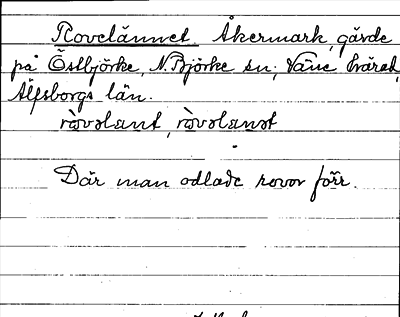 Rovelännet. Åkermark, gärde
på Östbjörke, N. Björke sn; Väne härad,
Älfsborgs län.
Där man odlade rovor förr.